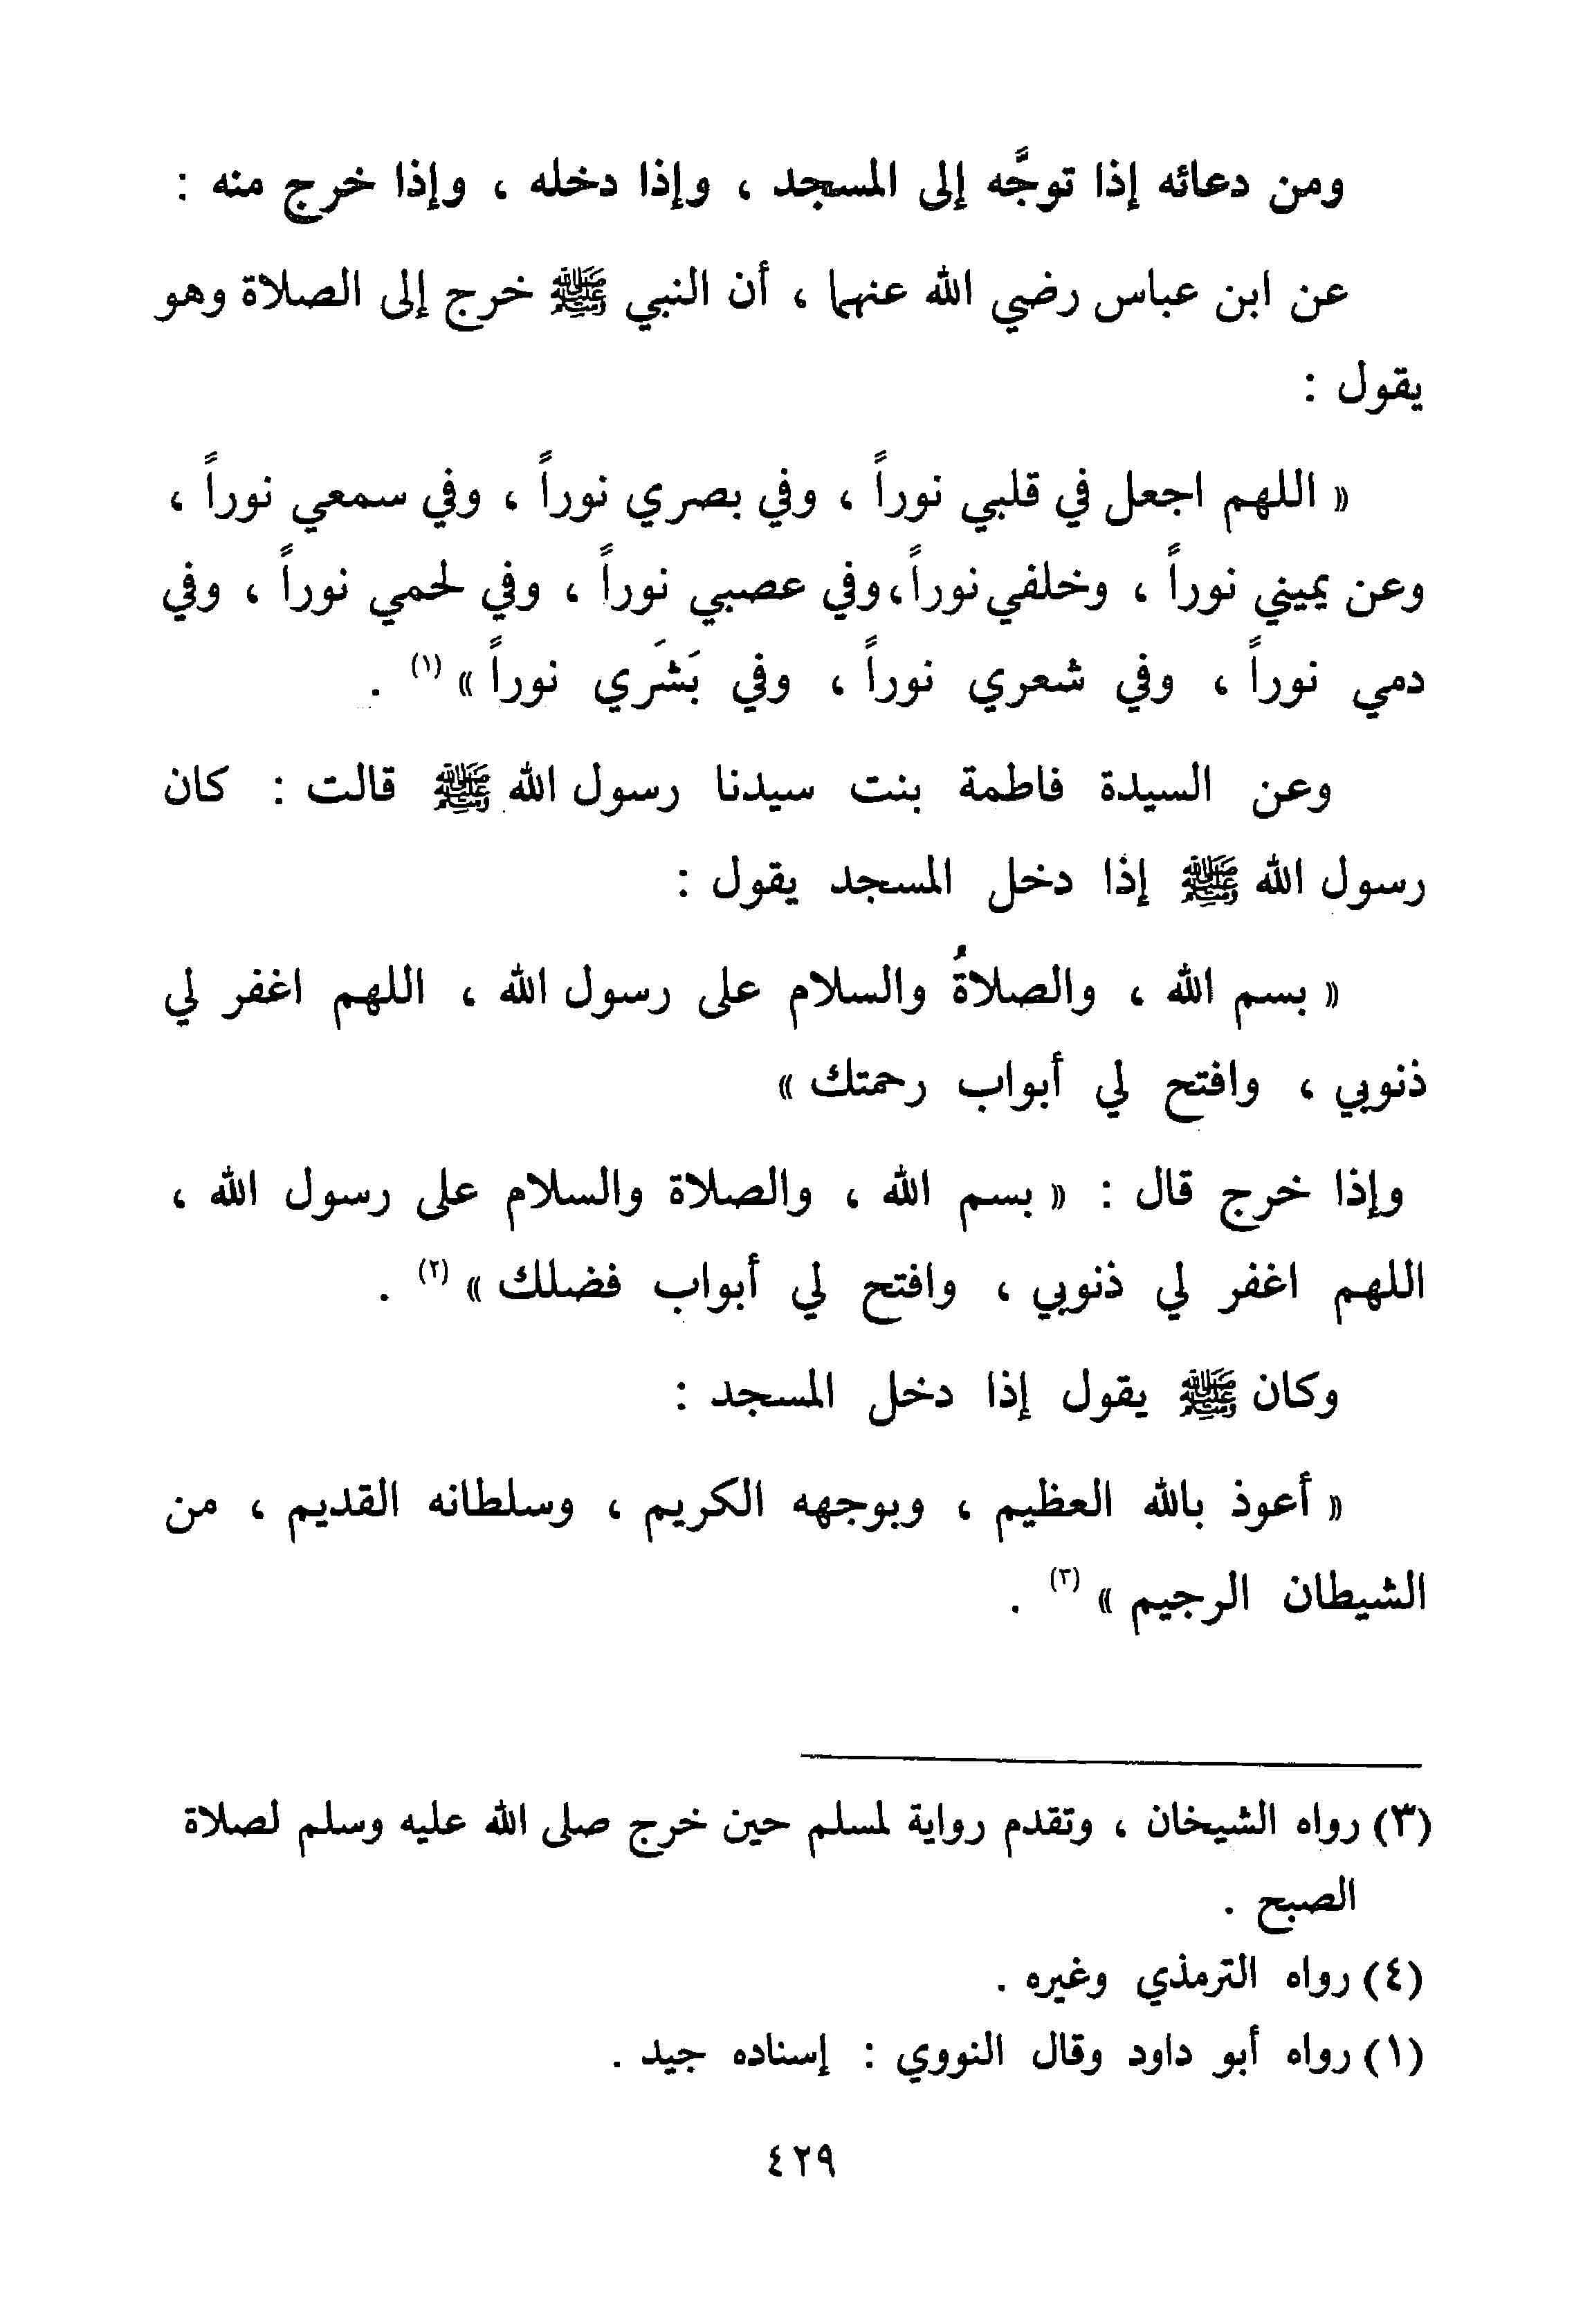 ومن دعائه إذا توجَّه إلى المسجد ، وإذا دخله ، وإذا خرج منه :
عن ابن عباس رضي الله عنهما ، أن النبي ﷺ خرج إلى الصلاة وهو
يقول :
« اللهم اجعل في قلبي نوراً ، وفي بصري نوراً ، وفي سمعي نوراً ،
وعن يميني نوراً ، وخلفي نوراً ، وفي عصبي نوراً ، وفي لحمي نوراً ، وفي
دمي نوراً ، وفي شعري نوراً ، وفي بَشَري نوراً » (١) .
وعن السيدة فاطمة بنت سيدنا رسول الله ﷺ قالت : كان
رسول الله ﷺ إذا دخل المسجد يقول :
« بسم الله ، والصلاةُ والسلام على رسول الله ، اللهم اغفر لي
ذنوبي ، وافتح لي أبواب رحمتك »
وإذا خرج قال : « بسم الله ، والصلاة والسلام على رسول الله ،
اللهم اغفر لي ذنوبي ، وافتح لي أبواب فضلك » (٢) .
وكان ﷺ يقول إذا دخل المسجد :
« أعوذ بالله العظيم ، وبوجهه الكريم ، وسلطانه القديم ، من
الشيطان الرجيم » (٣) .
(٣) رواه الشيخان ، وتقدم رواية لمسلم حين خرج صلى الله عليه وسلم لصلاة
الصبح .
(٤) رواه الترمذي وغيره .
(١) رواه أبو داود وقال النووي : إسناده جيد .
٤٢٩